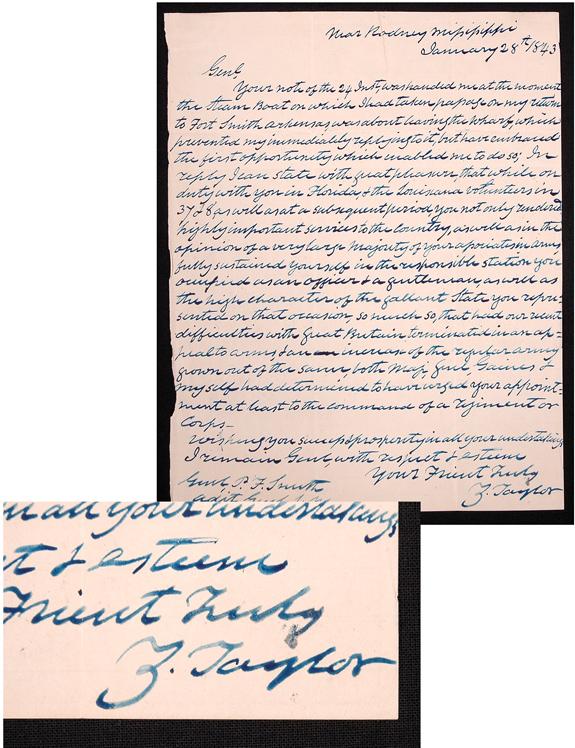 Near Rodney Mississippi
January 28th 1843
Genl
Your note of the 24 Inst, was handed me at the moment
the Steam Boat on which I had taken passage on my return
to Fort Smith arkansas was about leaving the wharf, which
prevented my immediately replying to it, but have embraced
the first opportunity which enabled me to do so; In
reply I can state with great pleasure, that while on
duty with you in Florida, & the Louisiana volunteers in
37 & 8 as well as at a subsequent period you not only rendered
highly important services to the country, as well as in the
opinion of a very large Majority of your asociates in arms
fully sustained yourself in the responsible station you
occupied as an officer & a gentleman, as well as
the high character of the gallant State you repre-
sented on that occasion, so much so, that had our recent
difficulties with Great Britain terminated in an ap-
peal to arms, & an increas of the regular army
grown out of the same, both Maj. Genl. Gaines &
myself had determined to have urged your appoint-
ment at least to the command of a regiment or
Corps—
Wishing you success & prosperity in all your undertakings
I remain Genl, with respect & esteem
Your Frient Truly
Z. Taylor
Genl P. F. Smith
in all your undertakings
ct & esteem
Frient Truly
Z. Taylor